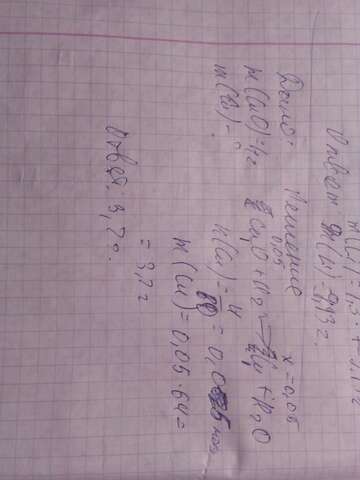 Ответ: m(Cu)=9,93г.
Дано: Решение
m(CuO)=4г. 0,05 x=0,05
m(Cu)=? CuO+H2→Cu+H2O
n(Cu)=4/80=0,05моль
m(Cu)=0,05·64=
=3,2г
Ответ: 3,2г.